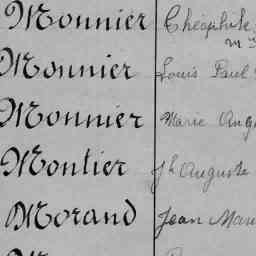 Monnier Théophile
Monnier Louis Paul
Monnier Marie Ang
Montier Jh Auguste
Morand Jean Mar